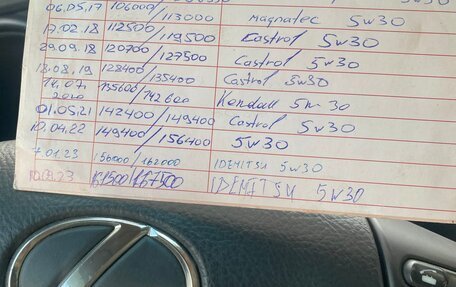 06.05.17 106000/113000 magnatec 5w30
17.02.18 112500/119500 Castrol 5w30
29.09.18 120700/127500 Castrol 5w30
18.08.19 128400/135400 Castrol 5w30
14.07.2020 135600/142600 Kendall 5w30
01.05.21 142400/149400 Castrol 5w30
10.04.22 149400/156400 5w30
7.01.23 156000/162000 IDEMITSU 5w30
161500/167500 IDEMITSU 5W30